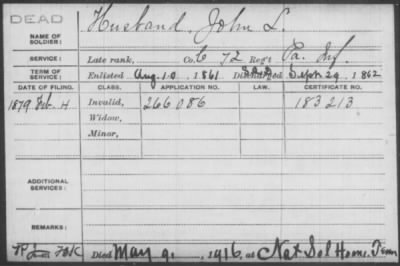 DEAD
Husband, John L.
NAME OF SOLDIER:
SERVICE: Late rank, Co. C 72 Reg't Pa. Inf.
TERM OF SERVICE: Enlisted Aug. 10, 1861 Discharged Sept. 29, 1862
DATE OF FILING. CLASS. APPLICATION NO. LAW. CERTIFICATE NO.
1879 Feb. 4 Invalid, 266086 183213
Widow,
Minor,
ADDITIONAL SERVICES:
REMARKS:
Died May 9, 1916, at Nat Sol Home, Tenn